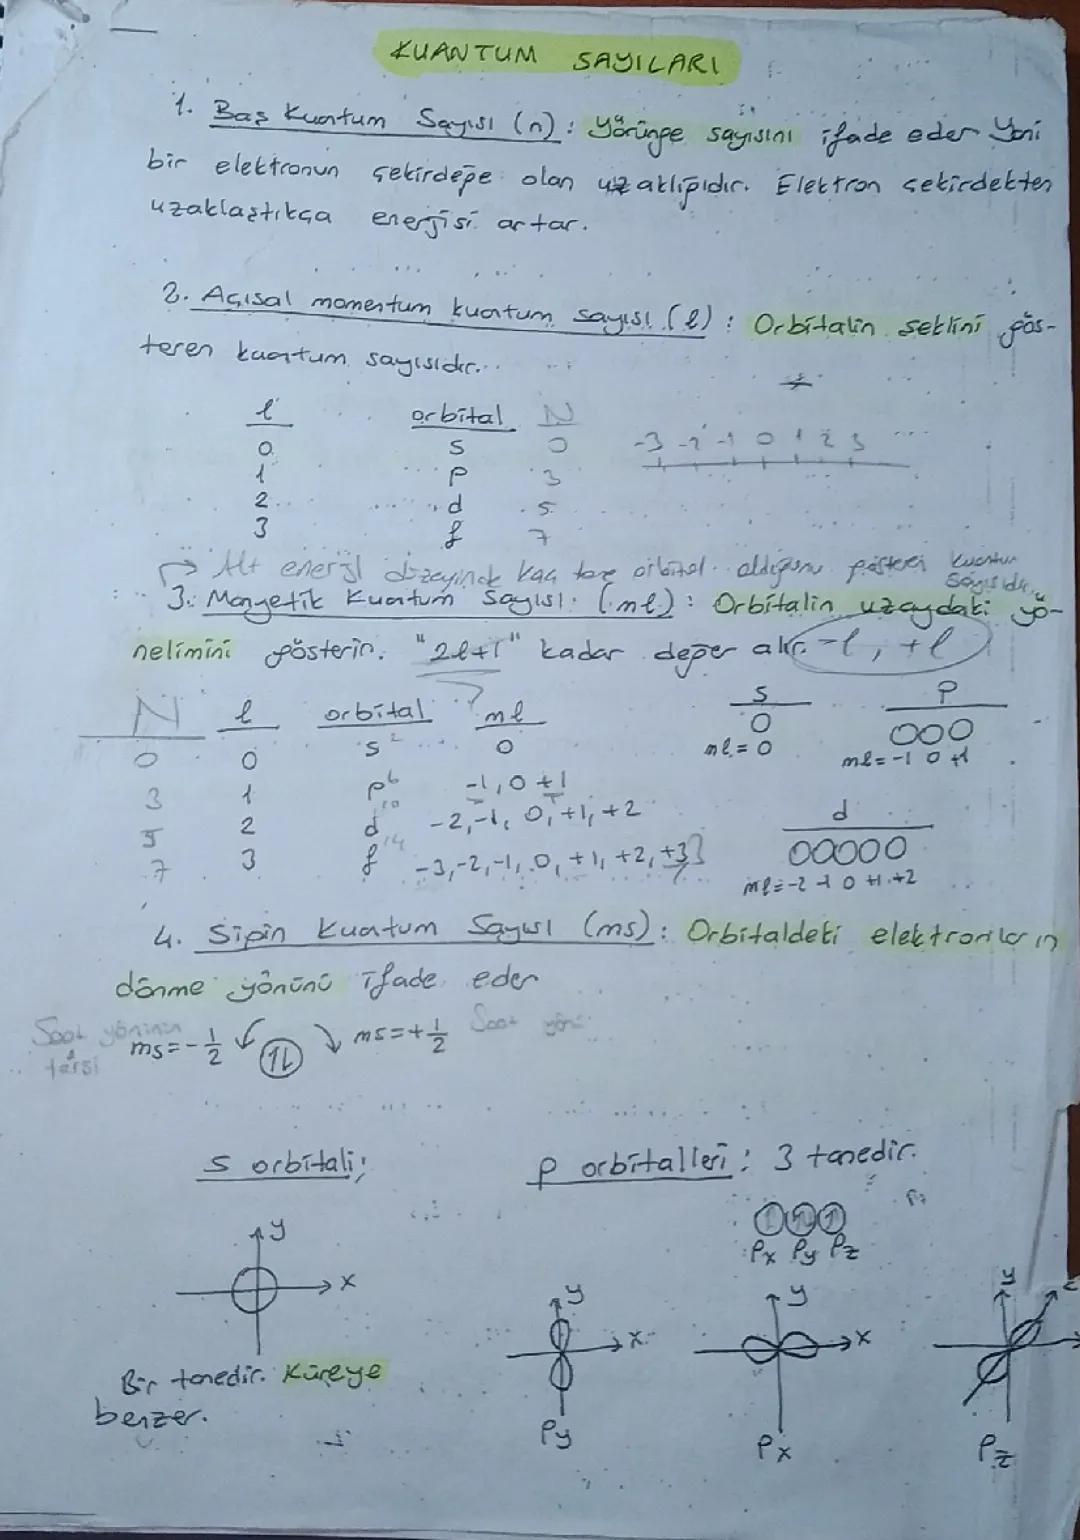 KUANTUM SAYILARI
1. Baş Kuantum Sayısı (n): Yörünge sayısını ifade eder Yani
bir elektronun çekirdeğe olan uzaklığıdır. Elektron çekirdekten
uzaklaştıkça enerjisi artar.
2. Açısal momentum kuantum sayısı (l): Orbitalin şeklini gös-
teren kuantum sayısıdır.
l orbital N
0 s 0
1 p 3
2 d 5
3 f 7
-3 -2 -1 0 1 2 3
Alt enerji düzeyinde kaç tane orbital olduğunu gösteren kuantum
sayısıdır.
3. Manyetik Kuantum Sayısı (ml): Orbitalin uzaydaki yö-
nelimini gösterir. "2l+1" kadar değer alır. -l, +l
N l orbital ml
0 0 s² 0
3 1 p⁶ -1, 0 +1
5 2 d¹⁰ -2, -1, 0, +1, +2
7 3 f¹⁴ -3, -2, -1, 0, +1, +2, +3
s
ml = 0
p
ml = -1 0 +1
d
ml = -2 -1 0 +1 +2
4. Sipin Kuantum Sayısı (ms): Orbitaldeki elektronların
dönme yönünü ifade eder
Saat yönünün
tersi
ms = -1/2 ms = +1/2 Saat yönü
s orbitali;
y
x
Bir tanedir. Küreye
benzer.
p orbitalleri: 3 tanedir.
Px Py Pz
y
x
Py
y
x
Px
y
Pz